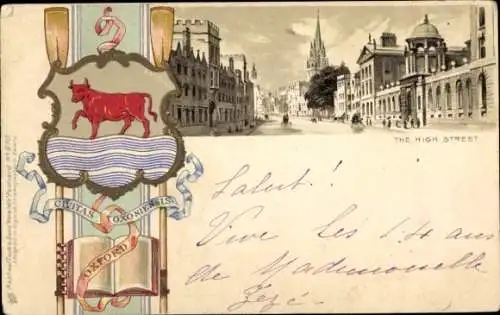 THE HIGH STREET
CIVITAS OXONIENSIS
OXFORD
Salut!
Vive les 14 ans
de Mademoiselle
Zezé